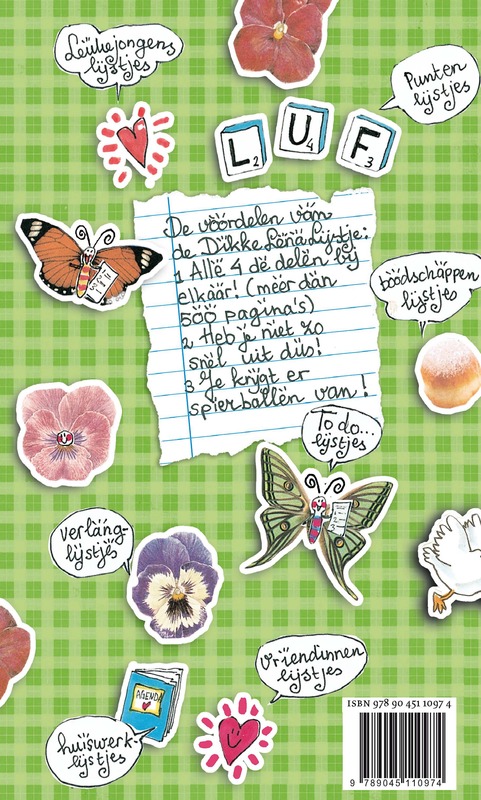 Leukejongens
lijstjes
Punten
lijstjes
L2 U4 F3
De voordelen van
de Dikke Lena Lijstje:
1 Alle 4 de delen bij
elkaar! (meer dan
500 pagina's)
2 Heb je niet zo
snel uit dus!
3 Je krijgt er
spierballen van!
boodschappen
lijstjes
To do...
lijstjes
verlang-
lijstjes
vriendinnen
lijstjes
AGENDA
huiswerk-
lijstjes
ISBN 978 90 451 1097 4
9 789045 110974